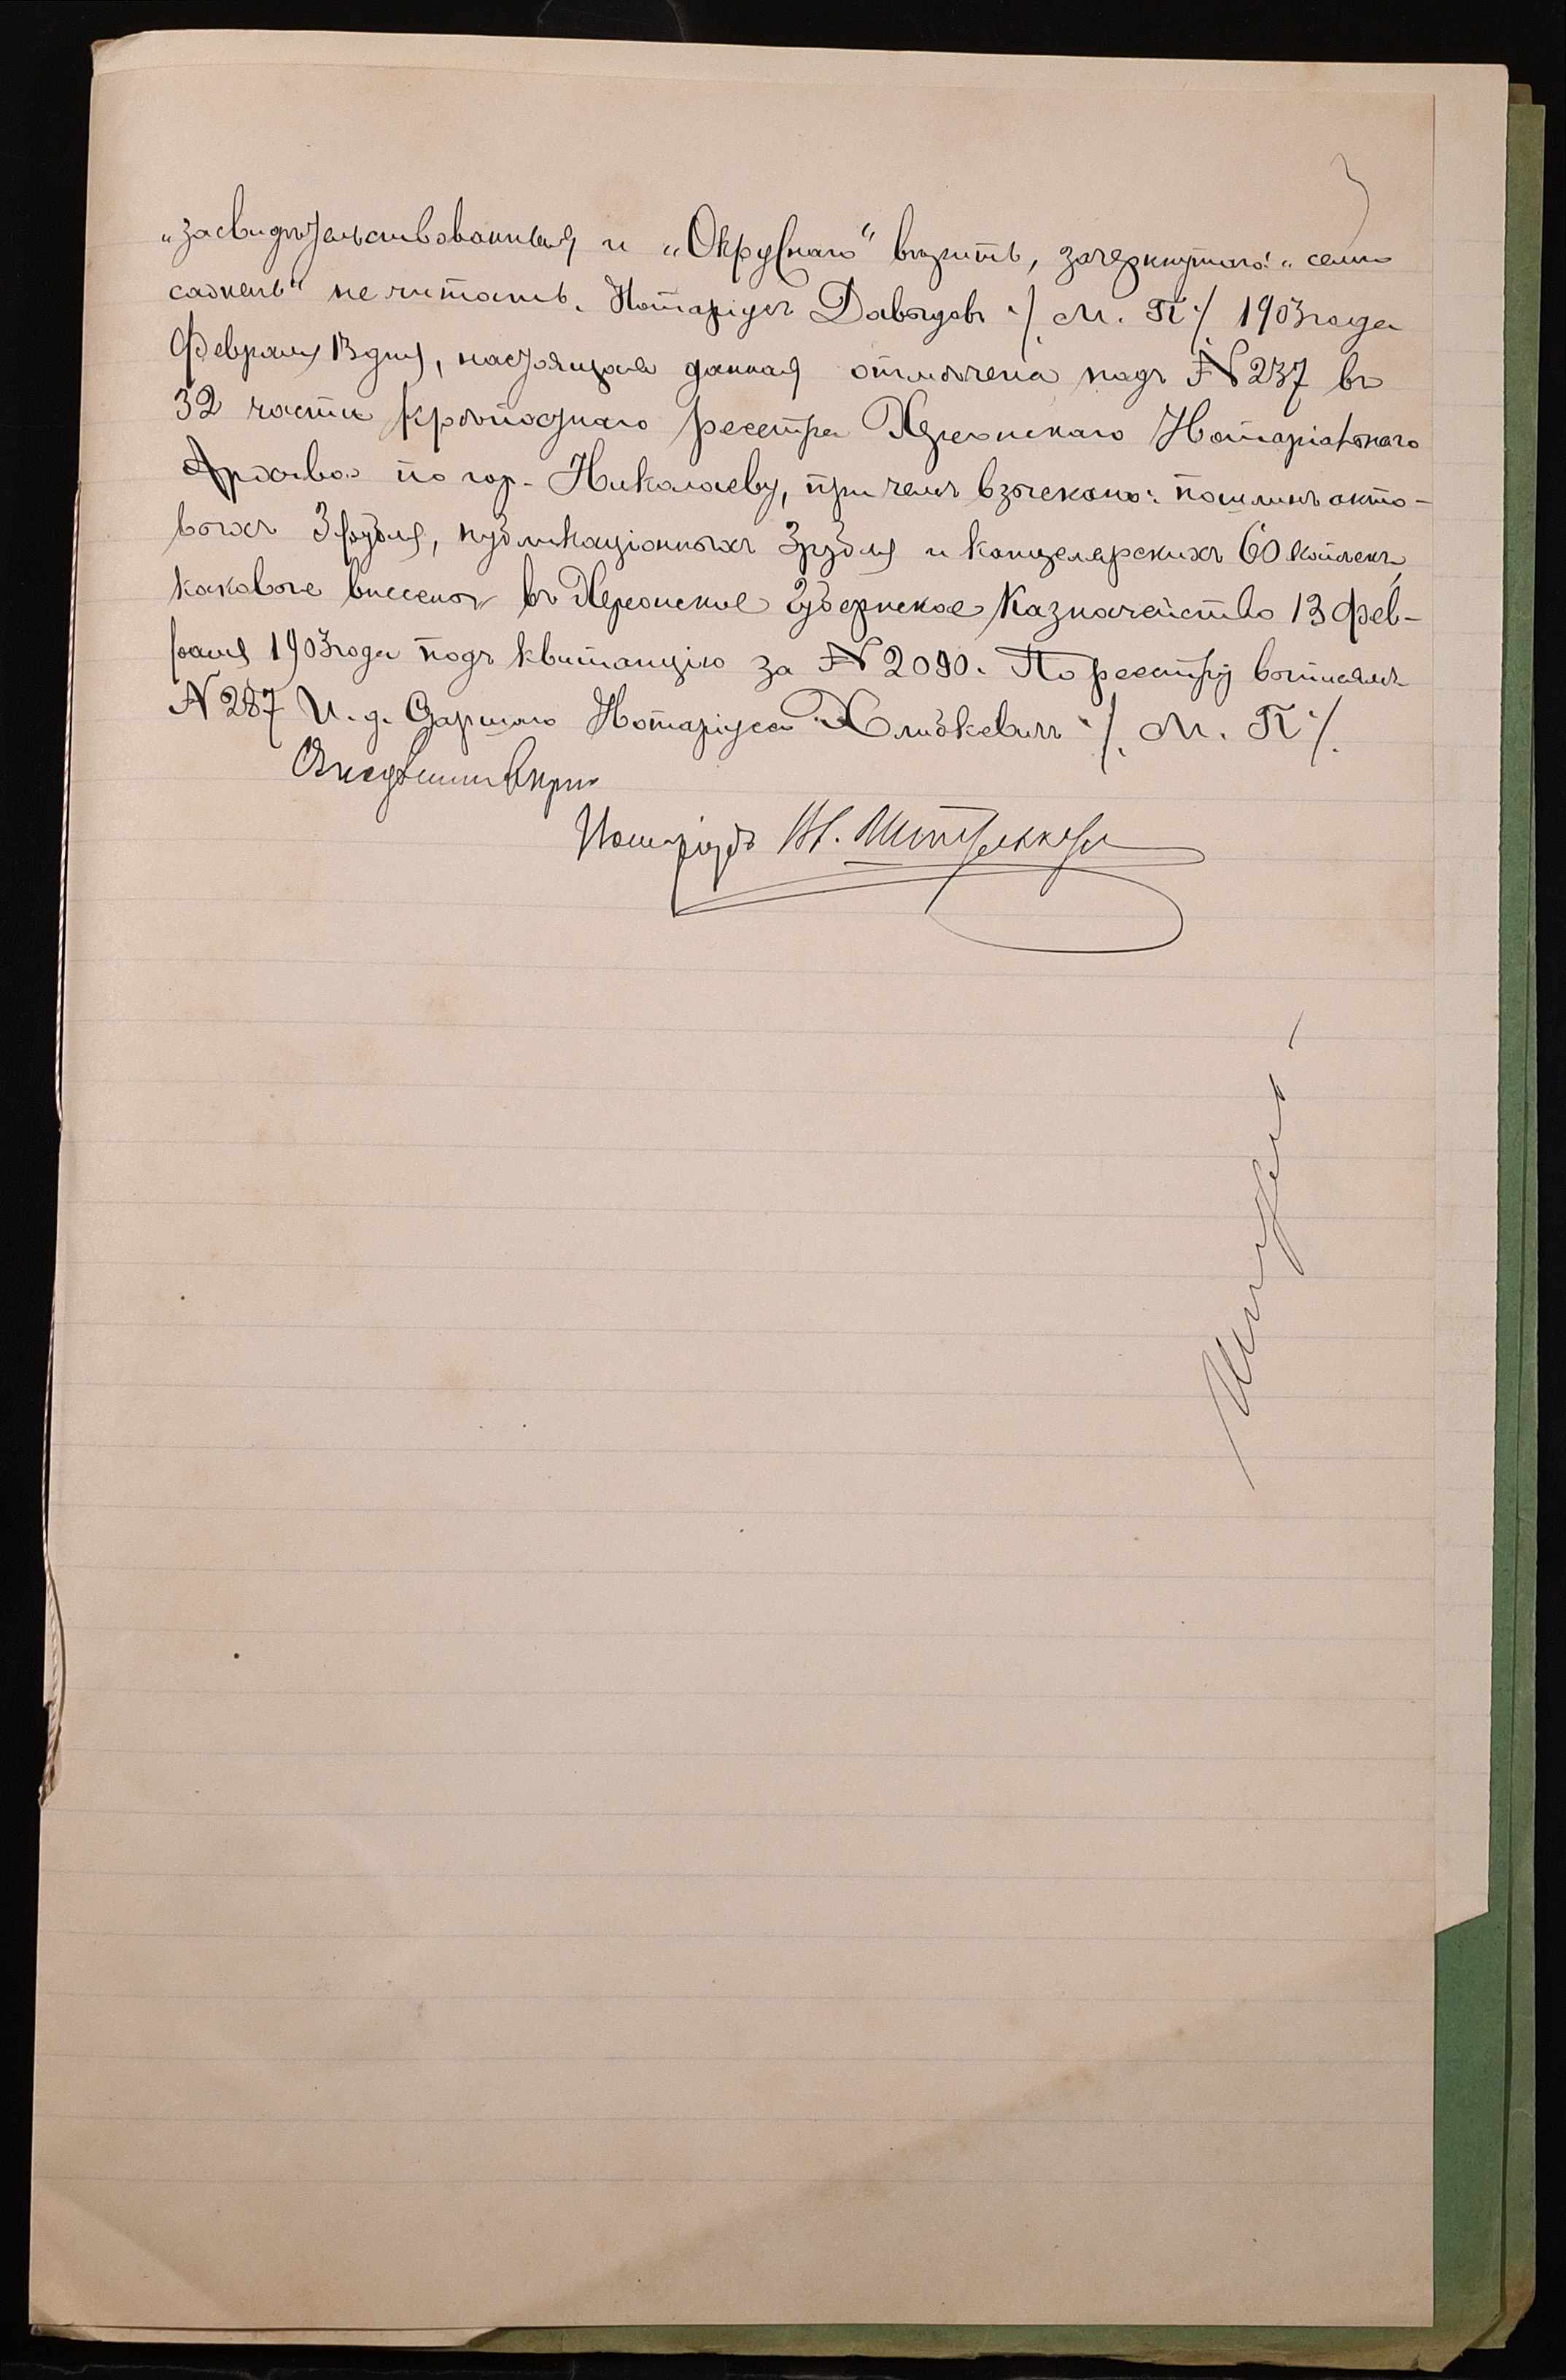 „засвидѣтельствованныя и „Окружнаго“ вѣрить, зачеркнутаго: „семь
сажень“ не читать. Нотаріусъ Давыдовъ /. М. П. /. 1903 года
Февраля 13 дня, настоящая данная отмѣчена подъ № 237 въ
32 части крѣпостнаго реестра Херсонскаго Нотаріальнаго
Архива по гор. Николаеву, при чемъ взыскано: пошлинъ акто-
выхъ 3 рубля, публикаціонныхъ 3 рубля и канцелярскихъ 60 копѣекъ,
каковые внесены въ Херсонское Губернское Казначейство 13 фев-
раля 1903 года подъ квитанцію за № 2090. По реестру выписямъ
№ 287 И. д. Старшаго Нотаріуса /. М. П. /.
Нотаріусъ